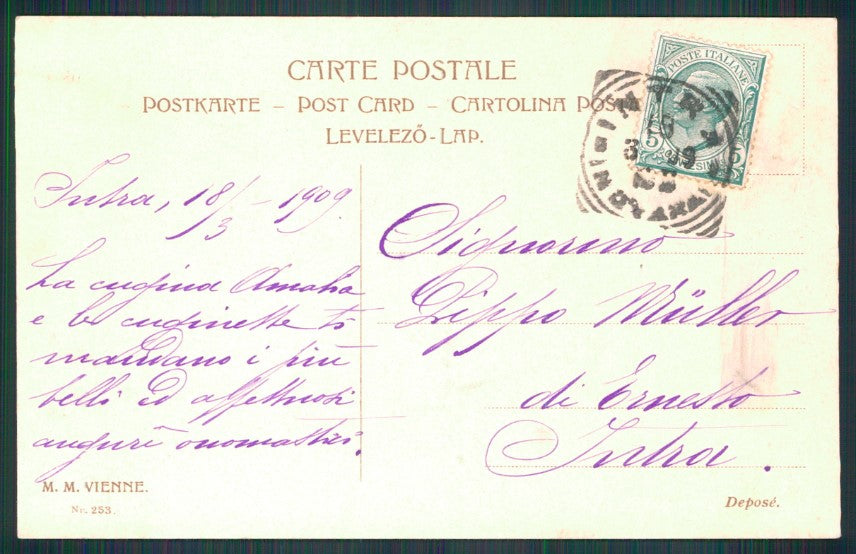 CARTE POSTALE
POSTKARTE – POST CARD – CARTOLINA POSTA
LEVELEZŐ-LAP.
POSTE ITALIANE
5 5
INTRA
Intra, 18/3 - 1909.
La cugina Amalia
e le cuginette ti
mandano i più
belli ed affettuosi
auguri onomastici.
Signorino
Pippo Müller
di Ernesto
Intra.
M. M. VIENNE.
Nr. 253.
Deposé.